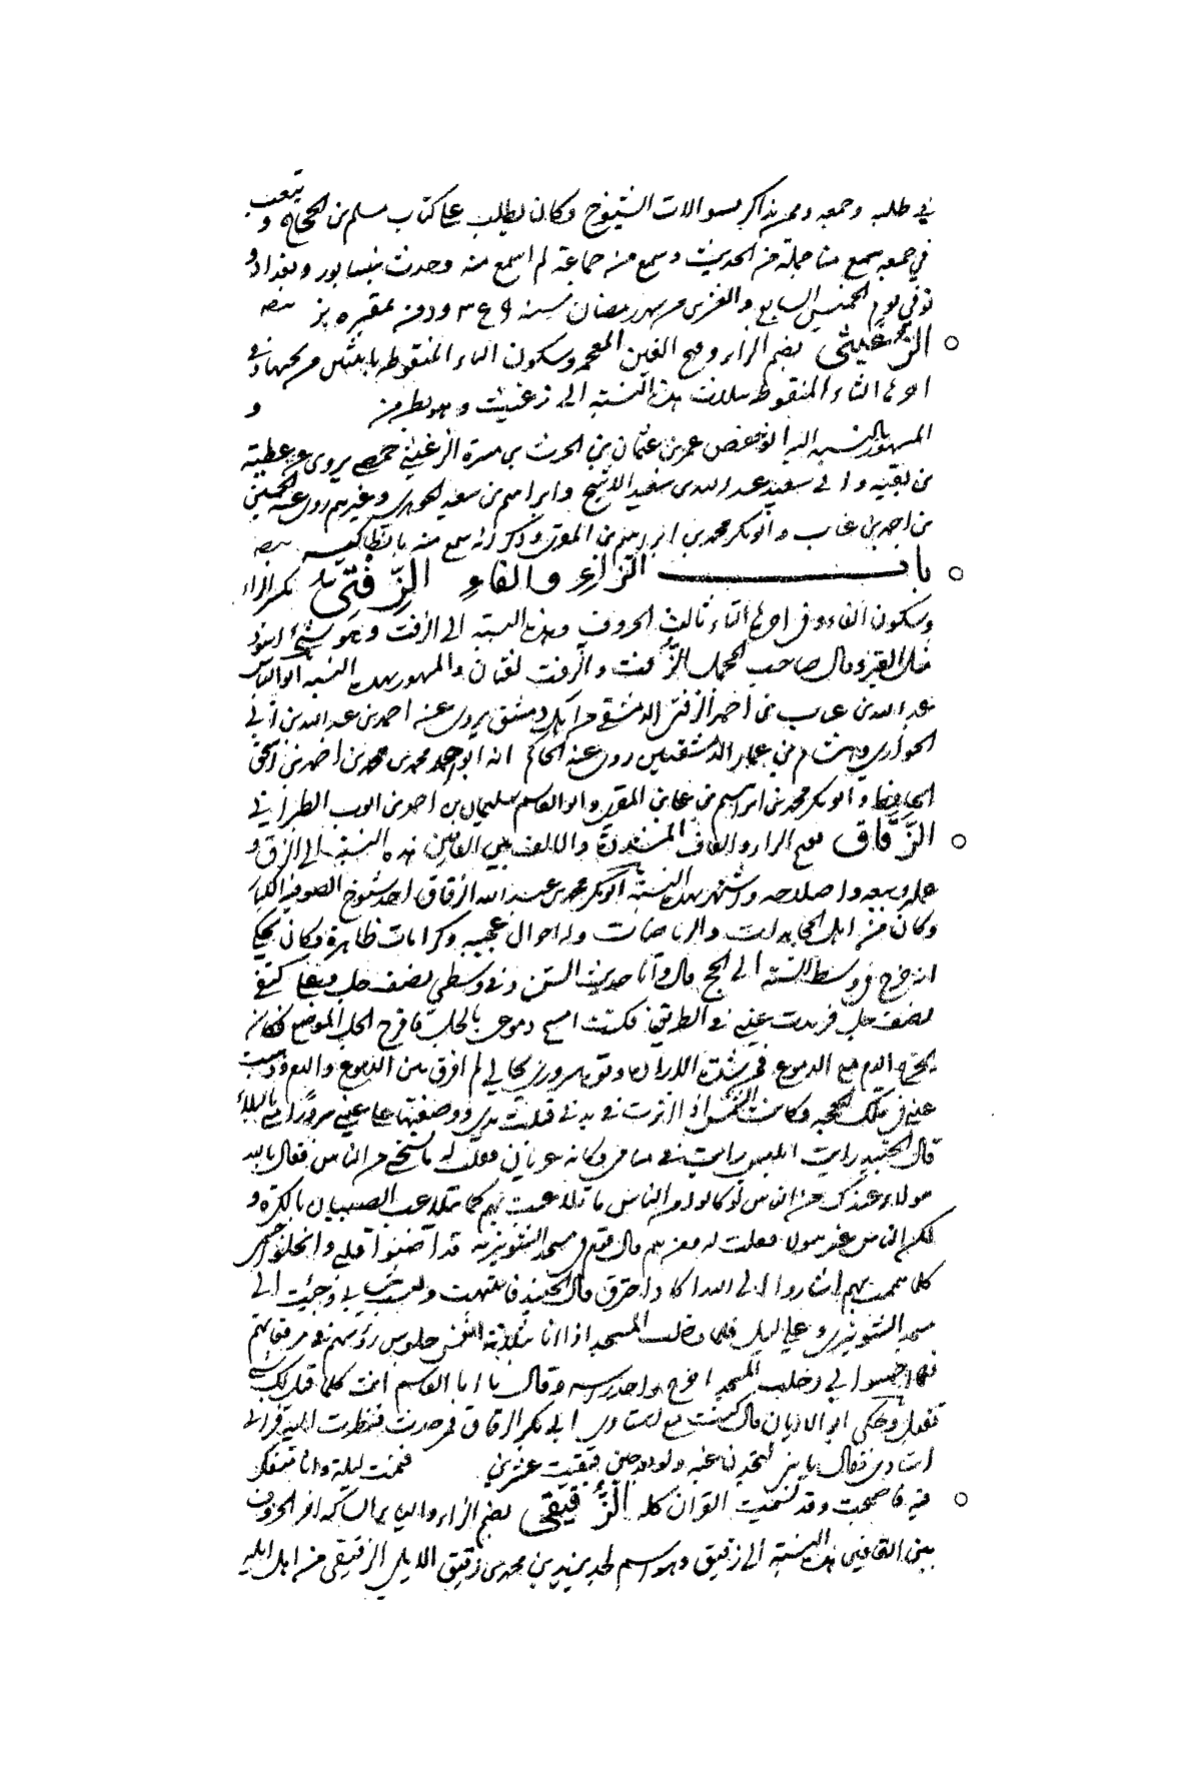 في طلبه وجمعه وممن يذاكر بسوالات الشيوخ وكان يطلب على كتاب مسلم بن الحجاج و يتعب
في جمعه سمع منا جملة من الحديث وسمع من جماعة لم اسمع منه وحدث بنيسابور وبغداد و
توفي يوم الخميس السابع والعشرين من شهر رمضان سنة ودفن بمقبرة
الزُّغَيثي بضم الزاء وفتح الغين المعجمة وسكون الياء المنقوطة باثنتين من تحتها وفي
اخرها الثاء المنقوطة بثلاث هذه النسبة الى زغيث وهو بطن من و
المشهور بالنسبة اليه ابو حفص عمر بن عثمان بن الحرث بن مسرة الزغيثي حمصي يروي عن عطية
بن بقية وابي سعيد عبد الله بن سعيد الاشج وابراهيم بن سعيد الجوهري وغيرهم روى عنه الحسين
بن احمد بن عتاب وابو بكر محمد بن ابراهيم بن المقري وذكر انه سمع منه بانطاكية
باب الزاء والفاء الزِّفتي بكسر الزاء
وسكون الفاء وفي اخرها التاء ثالث الحروف وهذه النسبة الى الزفت وهو شيء اسود
مثل القير وقال صاحب المجمل الزفت والزفت لغتان والمشهور بهذه النسبة ابو العباس
عبد الله بن عتاب بن احمد الزفتي الدمشقي من اهل دمشق يروي عنه احمد بن عبد الله بن ابي
الحواري وهشام بن عمار الدمشقيين روى عنه الحاكم ابو احمد محمد بن محمد بن احمد بن اسحق
الحافظ وابو بكر محمد بن ابراهيم بن علي بن المقري وابو القاسم سليمان بن احمد بن ايوب الطبراني
الزَّقّاق بفتح الزاء والقاف المشددة والالف بين القافين هذه النسبة الى الزق و
عمله وبيعه واصلاحه واشتهر بهذه النسبة ابو بكر محمد بن عبد الله الزقاق احد شيوخ الصوفية الكبار
وكان من اهل المجاهدات والرياضات وله احوال عجيبة وكرامات ظاهرة وكان يحكي
انه خرج في وسط السنة الى الحج قال وانا حديث السن وفي وسطي نصف جل وعلى كتفي
نصف جل فرمدت عيني في الطريق فكنت امسح دموعي بالجل فاقرح الجل الموضع فكان
يخرج الدم مع الدموع فمن شدة الارادة وقوة سروري بحالي لم افرق بين الدموع والدم وذهبت
عيني في تلك الحجة وكانت الشمس اذا اثرت في بدني قبلت يدي ووضعتها على عيني سرورا مني بالبلاء
قال الجنيد رايت ابليس في منامي وكانه عريان فقلت له ما تستحي من الناس فقال بالله
هولاء عندك من الناس لو كانوا من الناس ما تلاعبت بهم كما يتلاعب الصبيان بالكرة و
لكن الناس غير هولاء فقلت له من هم قال قوم في مسجد الشونيزية قد اضنوا قلبي وانحلوا جسمي
كلما هممت بهم اشاروا الى الله اكاد احترق قال الجنيد فانتبهت ولبست ثيابي وجئت الى
مسجد الشونيزي وعلي ليل فلما دخلت المسجد اذا انا بثلاثة انفس جلوس رؤسهم في مرقعاتهم
فلما احسوا بي دخلت المسجد اخرج واحد راسه وقال يا ابا القاسم انت كلما قيل لك شيء
تقبل وحكى ابو الاديان قال كنت مع استاذي ابي بكر الزقاق فمر حدث فنظرت اليه فراني
استاذي فقال يا بني لتجدن غبه ولو بعد حين فبقيت عشرين فنمت ليلة وانا متفكر
فيه فاصبحت وقد نسيت القران كله الزُّقَيقي بضم الزاء والياء الساكنة اخر الحروف
بين القافين هذه النسبة الى زقيق وهو اسم لجد يزيد بن محمد بن زقيق الايلي الزقيقي من اهل ايلة